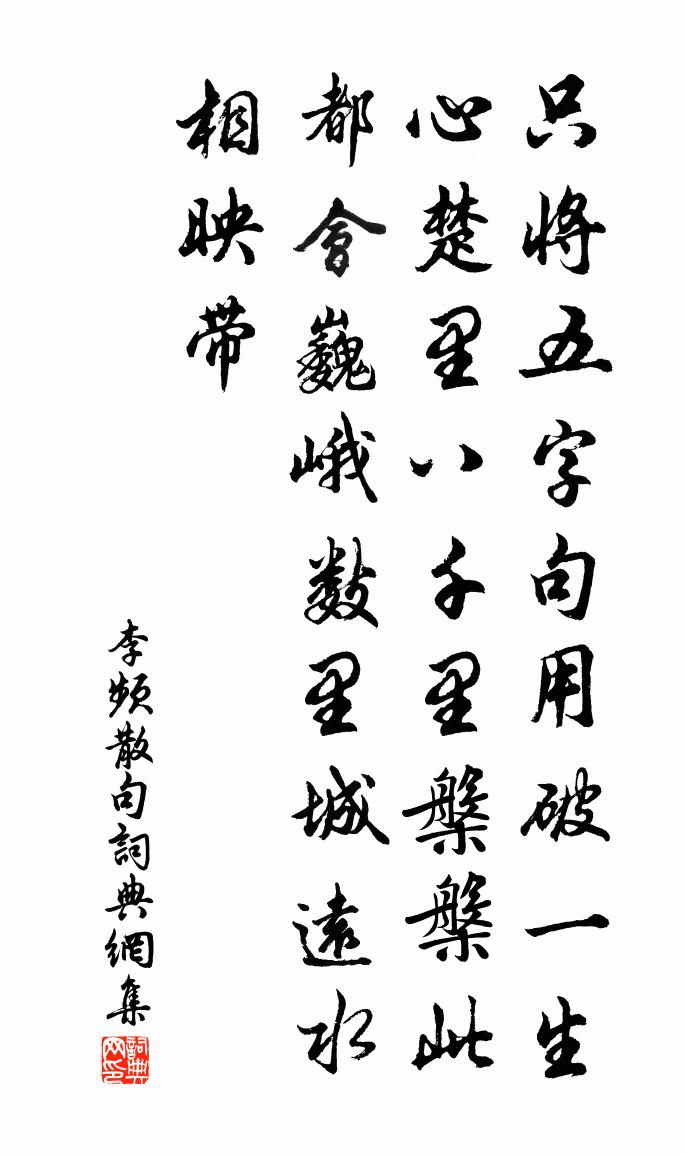 只将五字句用破一生
心楚里八千里槃槃此
都會巍峨数里城遠水
相映带
李频散句詞典網集
詞典网印